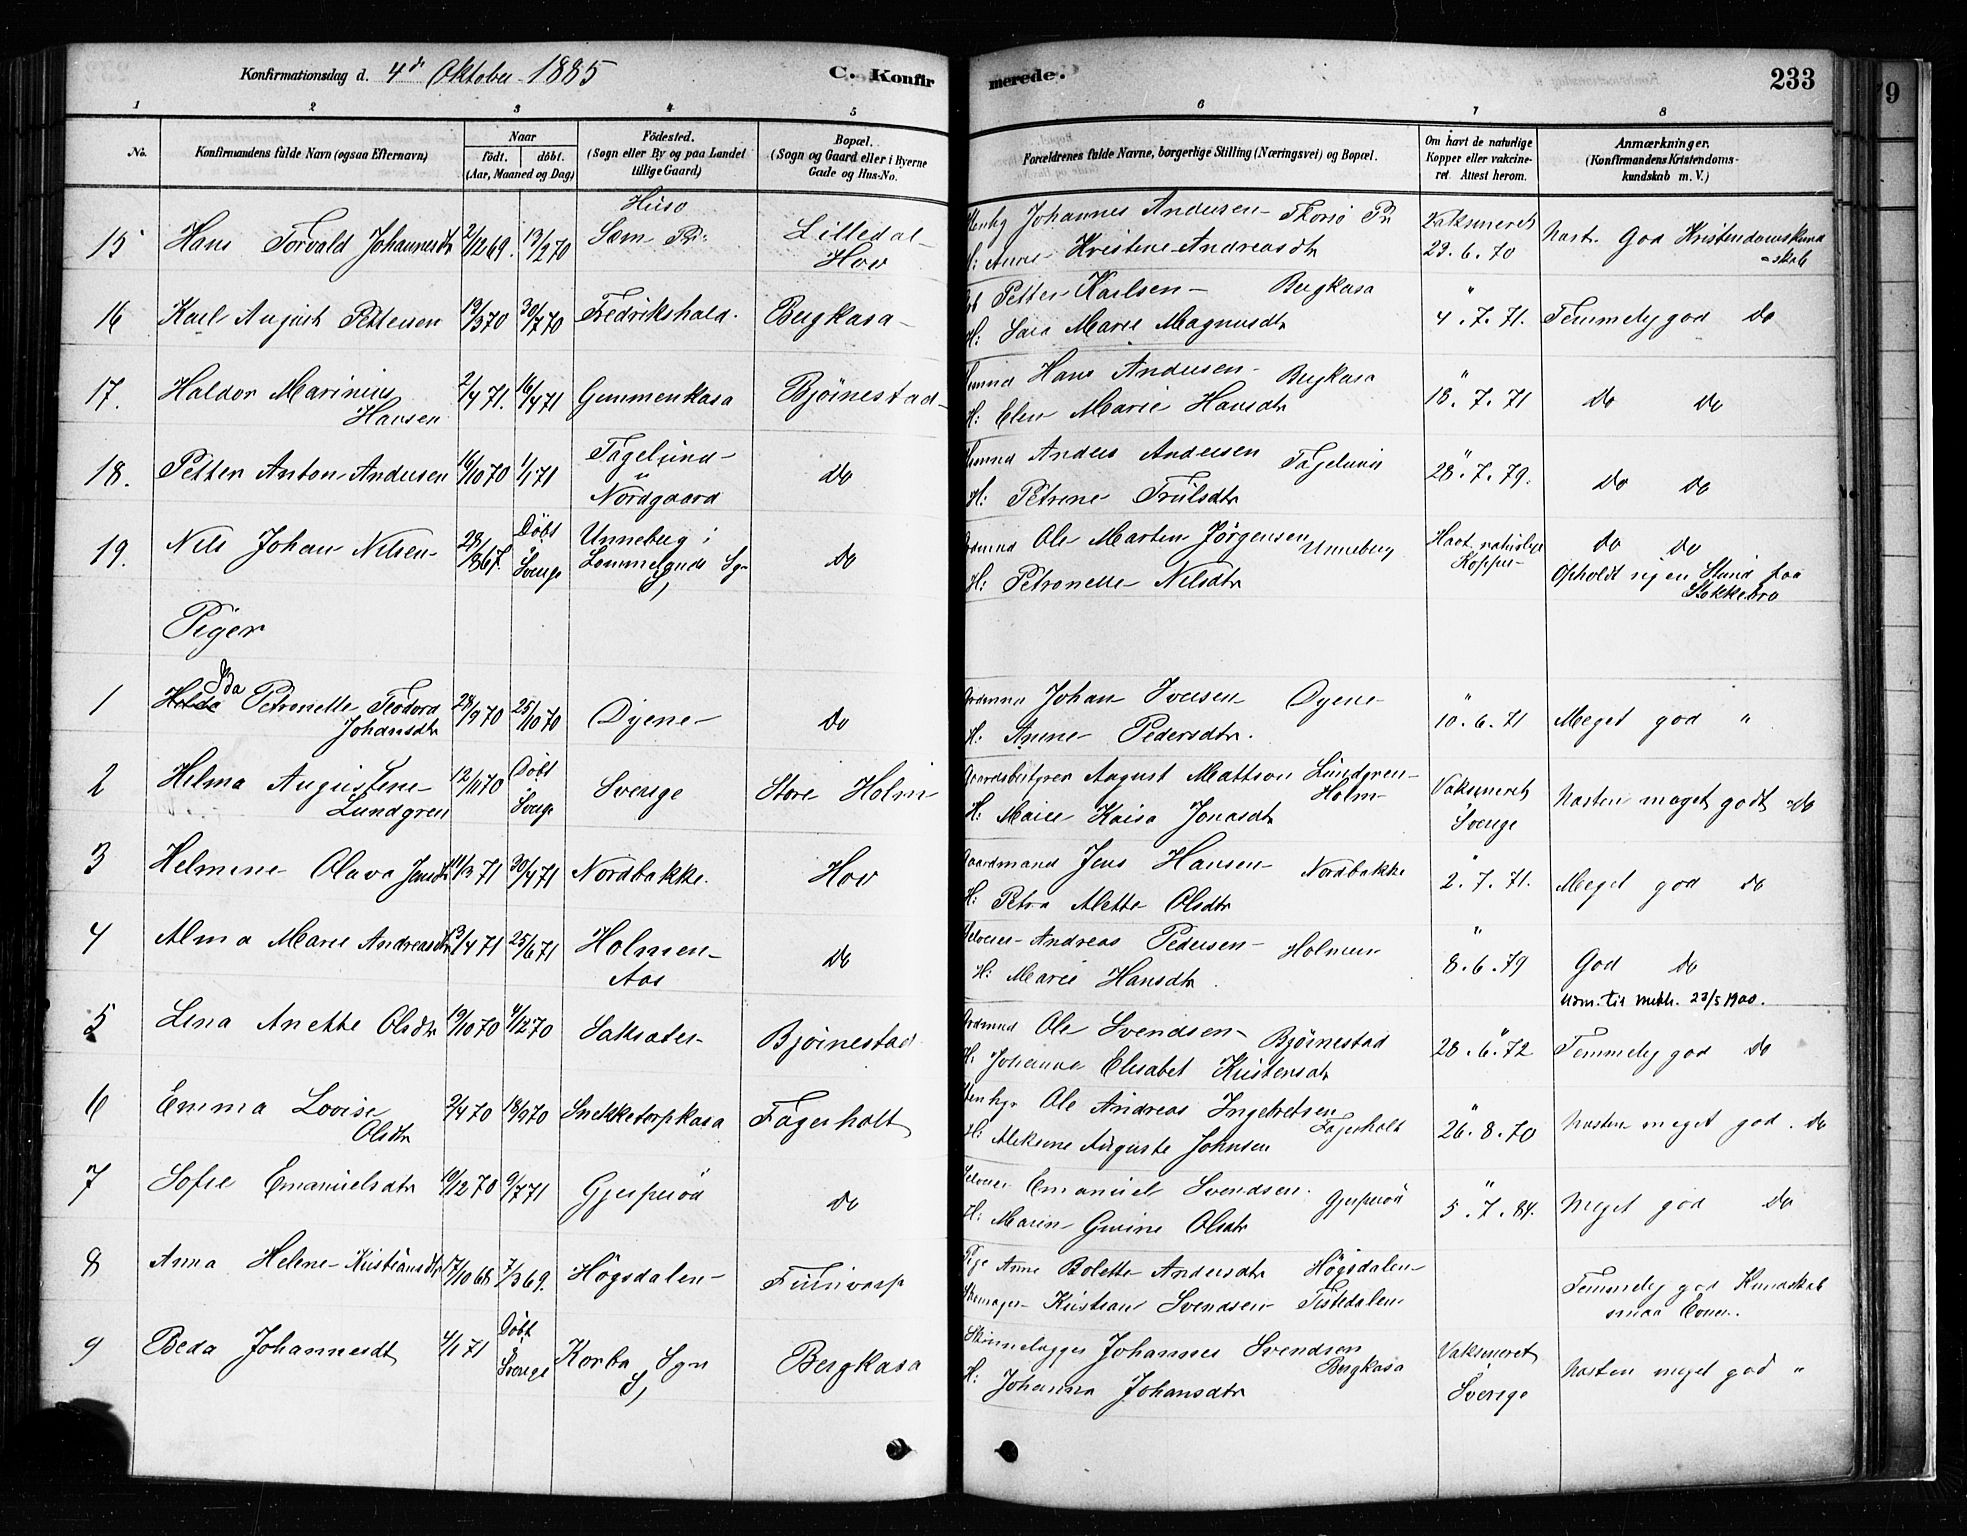 Konfirmationsdag d. 4de Oktober 1885
C. Konfirmerede.
233
1 2 3 4 5 6 7 8
No.
Konfirmandens fulde Navn (ogsaa Efternavn)
Naar
født. døbt.
(Aar, Maaned og Dag)
Födested.
(Sogn eller By og paa Landet
tillige Gaard)
Bopæl.
(Sogn og Gaard eller i Byerne
Gade og Hus-No.
Forældrenes fulde Navne, borgerlige Stilling (Næringsvei) og Bopæl.
Om havt de naturlige
Kopper eller vakcine-
ret. Attest herom.
Anmærkninger.
(Konfirmandens Kristendoms-
kundskab m. V.)
15 Hans Torvald Johannesdtr 2/12 69. 13/2 70 Sæm Lilledal Hov
Johannes Andersen
H: Anne Kristine Andreasdtr
Vaksineret 23.6.70
God Kristendomskundskab
16 Karl August Pettersen 19/3 70 30/7 70 Fredrikshald. Bergkasa
Petter Karlsen Bergkasa
H: Sara Marie Magnusdtr
" 4.7.71. Temmelig god Do
17. Haldor Marinius Hansen 2/4 71. 16/4 71 Gummenkasa Bjørnestad
Hans Andersen Bergkasa
H: Elen Marie Hansdtr
" 18.7.71 Do Do
18. Petter Anton Andersen 16/10 70 1/1 71 Fagelund u Nordgaard Do
Anders Andersen Fagelund
H: Petrine Trulsdtr
" 28.7.79. Do Do
19. Nils Johan Nilsen 28/3 67. Döbt i Sverige Unneberg i Lommelands Sgn S, Do
Ole Martin Jörgensen Unneberg
H: Petronelle Nilsdtr
Havt naturlige Kopper
Do Do
Opholdt sig en Stund paa Stokkebro
Piger
1 Hilda Ida Petronelle Teodora Johansdtr 28/9 70 25/10 70 Dyene Do
Johan Iversen Dyene
H: Anne Pedersdtr.
" 10.6.71 Meget god "
2 Hilma Augustine Lundgren 12/10 70 Döbt i Sverige Sverige Store Holm
Gaardsbestyrer August Mattson Lundgren Holm
H: Maria Kaisa Jonasdtr
Vaksineret i Sverige
Næsten meget godt Do
3 Helmine Olava Jensdtr 11/3 71 30/4 71 Nordbakke. Hov
Gaardmand Jens Hansen Nordbakke
H: Petra Alette Olsdtr
" 2.7.71. Meget god Do
4 Alma Marie Andreasdtr 13/4 71 25/6 71 Holmen Aas Do
Selveier Andreas Pedersen Holmen
H: Marie Hansdtr.
" 8.6.79 God Do
Udm. til Meth. 23/5 1900.
5 Lina Anette Olsdtr 19/10 70 4/12 70 Bjørnestad
Ole Svendsen Bjørnestad
H: Johanne Elisabet Kristensdtr
" 28.6.72 Temmelig god Do
6 Emma Lovise Olsdtr 2/4 70 18/9 70 Snekketorpkasa Fagerholt
Ole Andreas Ingebretsen Fagerholt
H: Auguste Johnsen
" 26.8.70 Næsten meget god. Do
7 Sofie Emanuelsdtr 10/12 70 9/7 71 Gjesperöd Do
Selveier Emanuel Svendsen. Gjesperöd
H: Maren Gurine Olsdtr
" 5.7.84. Meget god Do
8 Anna Helene Kristiansdtr 17/10 68 7/3 69. Högsdalen
Pige Anne Bolette Andersdtr Högsdalen
Skomager Kristian Svendsen Tistedalen
Temmelig god Kundskab
smaa Evner.
9 Beda Johannesdtr 4/1 71 Döbt i Sverige Sgn S, Bergkasa
Johannes Svendsen Bergkasa
H: Johanna Johansdtr
Vaksineret i Sverige
Næsten meget god "